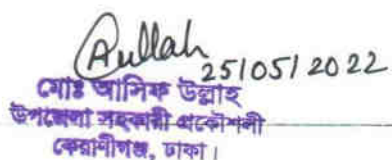 Aullah
25/05/2022
মোঃ আসিফ উল্লাহ
উপজেলা সহকারী প্রকৌশলী
কেরাণীগঞ্জ, ঢাকা।